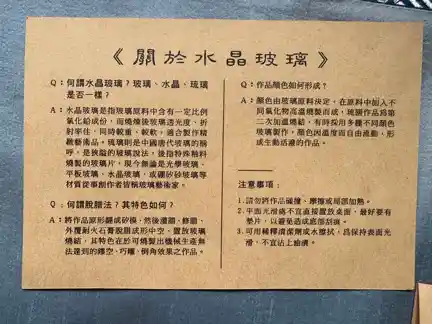 《關於水晶玻璃》
Q：何謂水晶玻璃？玻璃、水晶、琉璃
是否一樣？
A：水晶玻璃是指玻璃原料中含有一定比例
氧化鉛成份，而燒煉後玻璃透光度、折
射率佳，同時較重、較軟，適合製作精
緻藝術品。琉璃則是中國古代玻璃的稱
呼，是狹隘的玻璃說法，後指特殊釉料
燒製的玻璃片，現今無論是光學玻璃、
平板玻璃、水晶玻璃，或硼矽砂玻璃等
材質從事創作者皆稱玻璃藝術家。
Q：何謂脫臘法？其特色如何？
A：將作品原形翻成矽模，然後灌臘、修臘、
外覆耐火石膏脫臘成形中空，置放玻璃
燒結，其特色在於可燒製出機械生產無
法達到的鏤空、巧雕、倒角效果之作品。
Q：作品顏色如何形成？
A：顏色由玻璃原料決定，在原料中加入不
同氧化物高溫燒製而成，琉璃作品為第
二次加溫燒結，有時採用多種不同顏色
玻璃製作，顏色因溫度而自由流動，形
成生動活潑的作品。
注意事項：
1.請勿將作品碰撞、摩擦或局部加熱。
2.平面光滑痛不宜直接置放桌面，最好要有
墊片，以避免造成底部刮痕。
3.可用稀釋清潔劑或水擦拭，為保持表面光
滑，不宜沾上油漬。